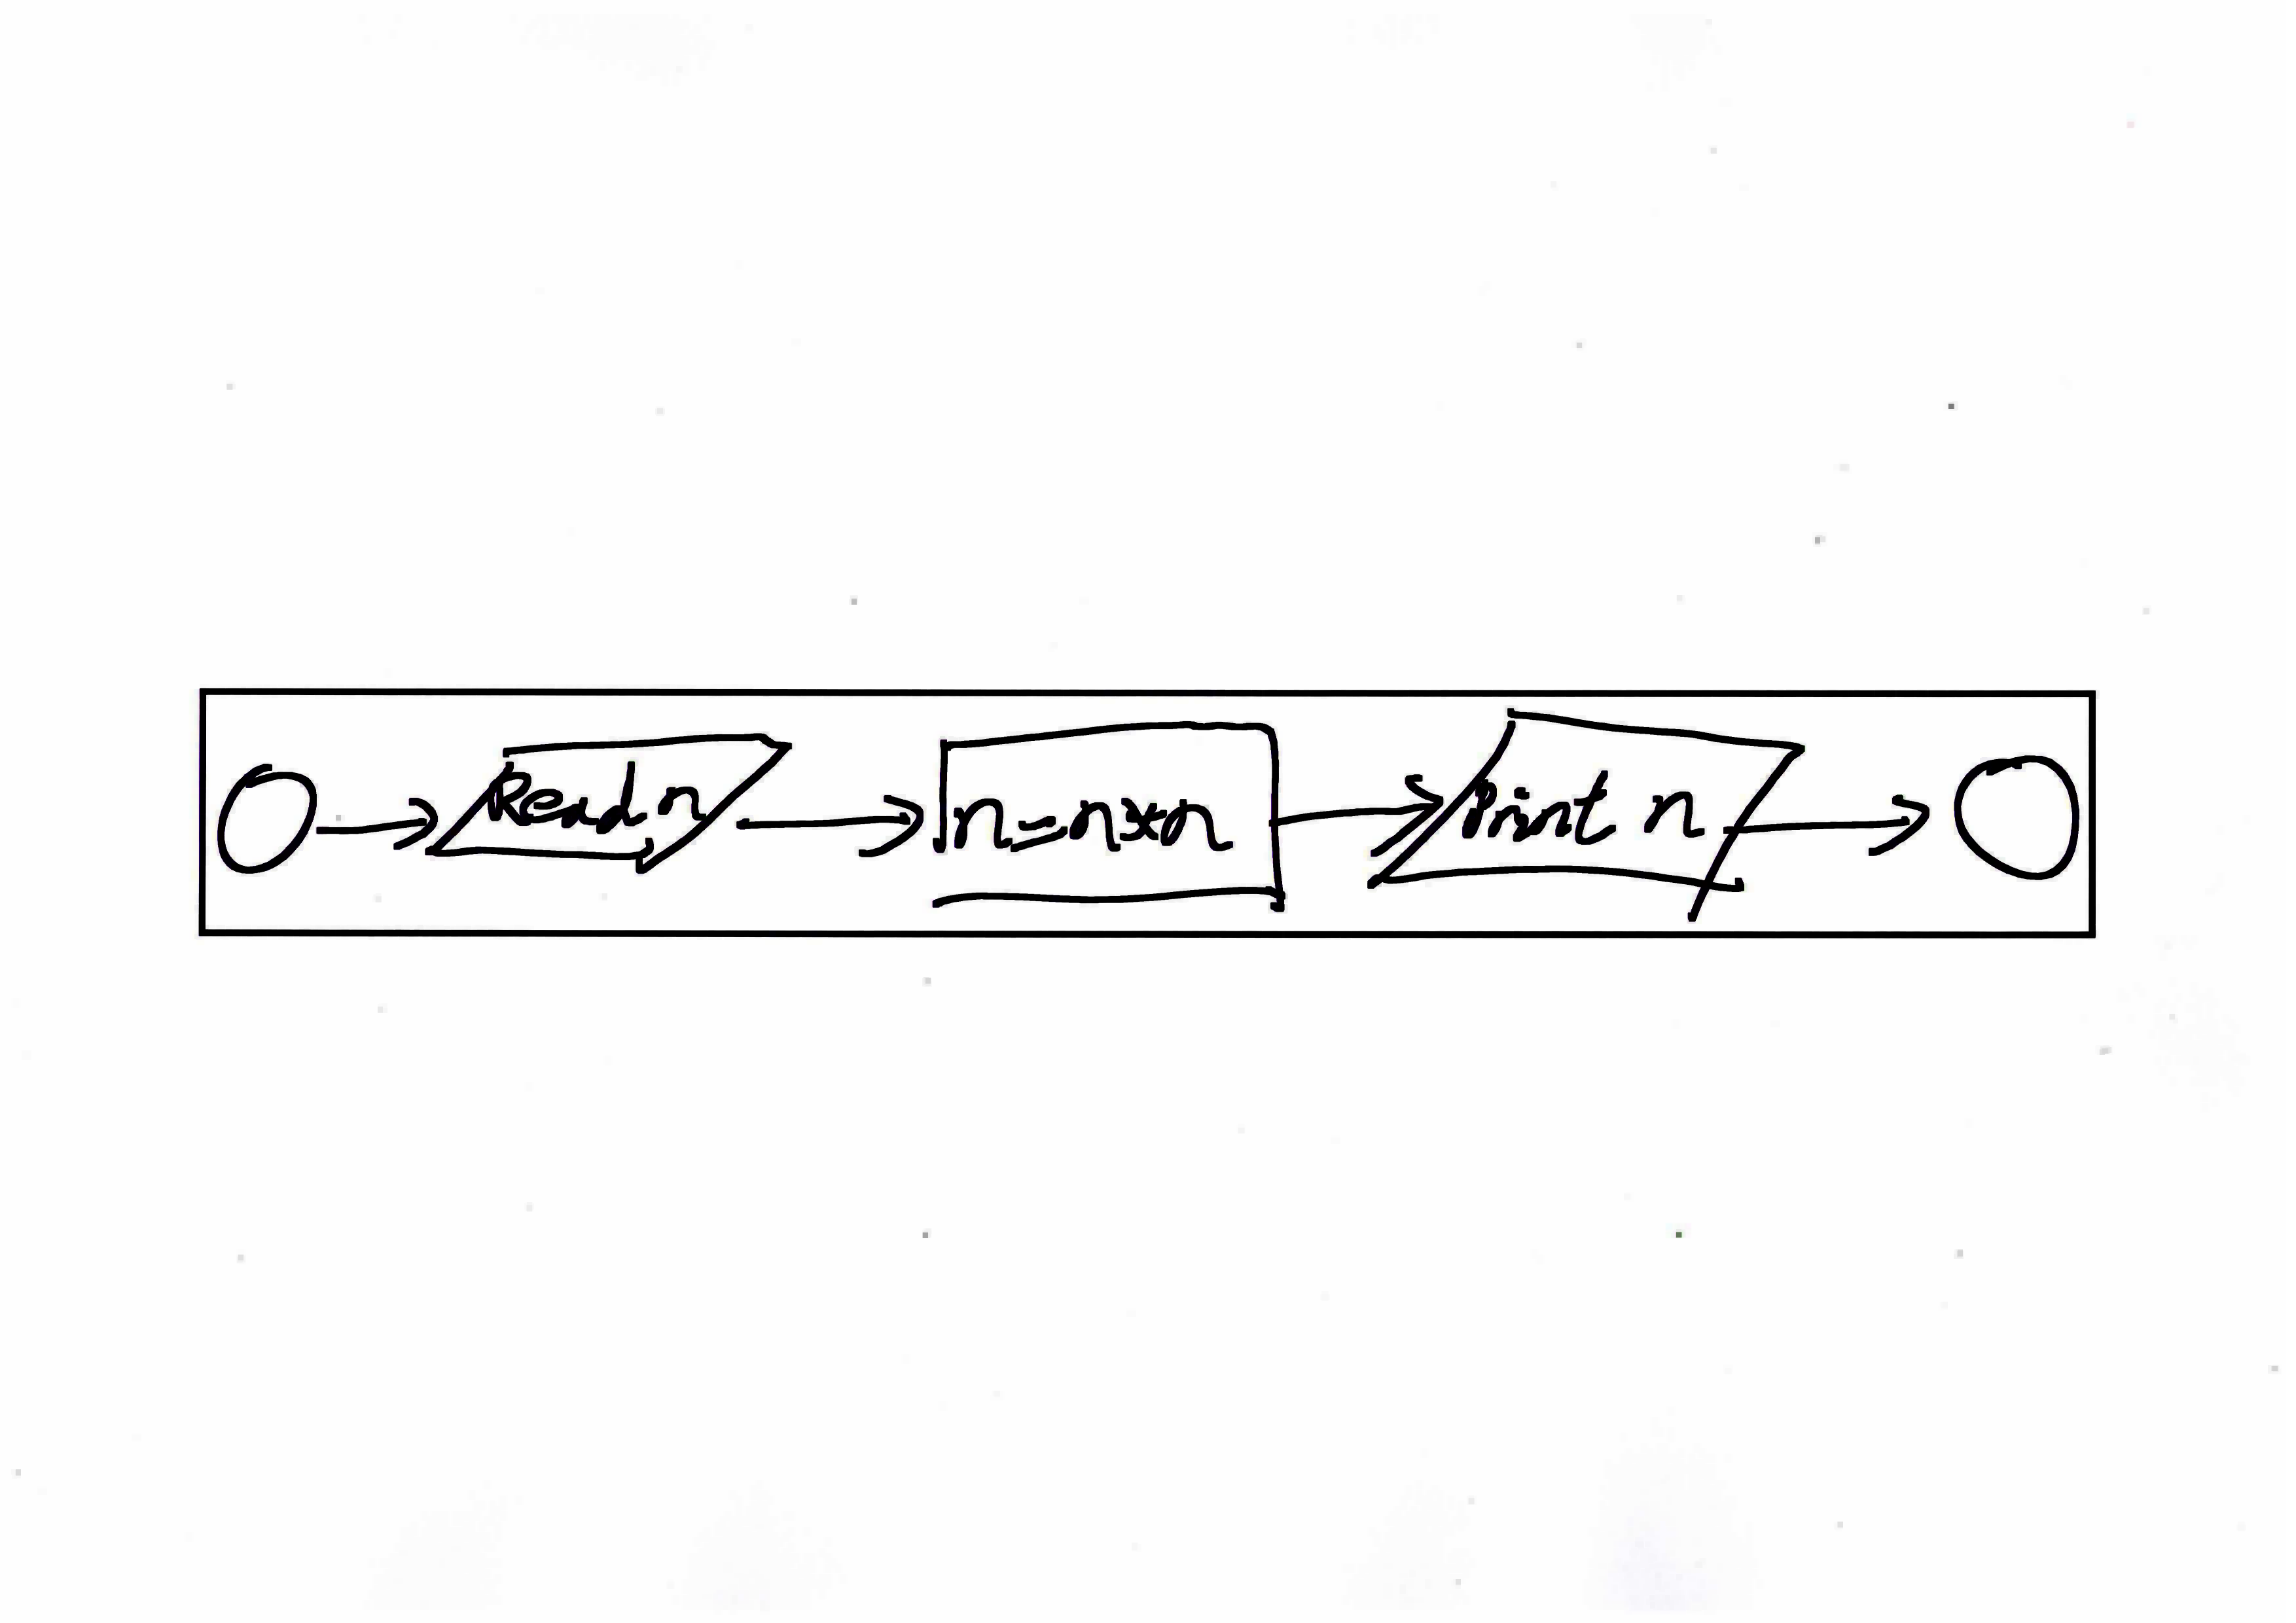 Read n
n=n×n
Print n